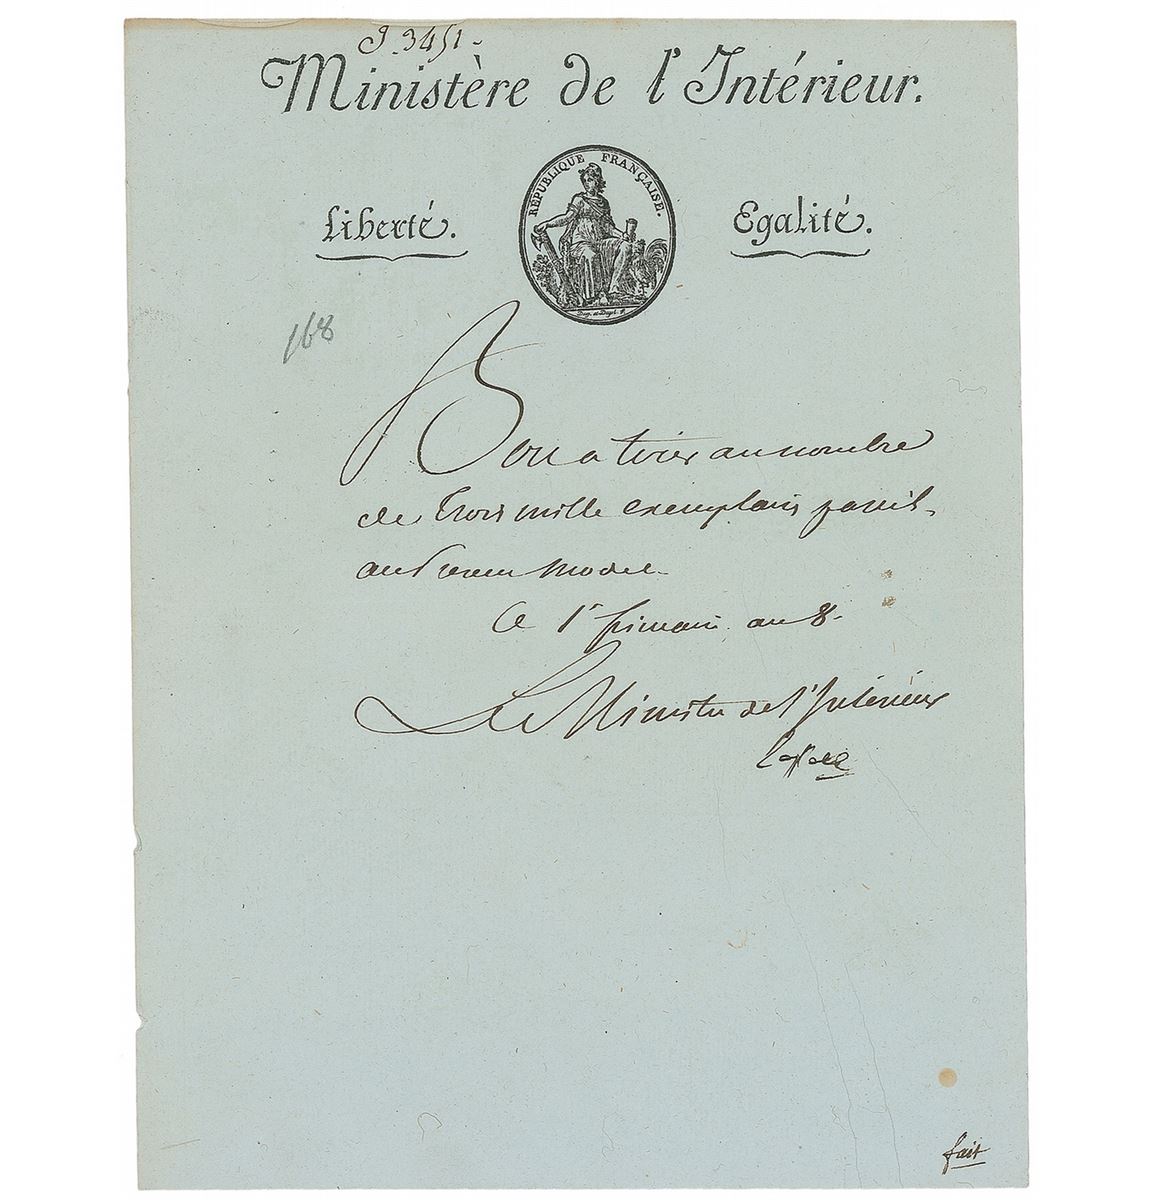 J. 3451.
Ministère de l'Intérieur.
RÉPUBLIQUE FRANÇAISE.
Liberté.
Egalité.
168
Bon a tirer au nombre
de trois mille exemplaires pareil
au modele
Ce 1er frimaire an 8.
Le Ministre de l'Intérieur
fait